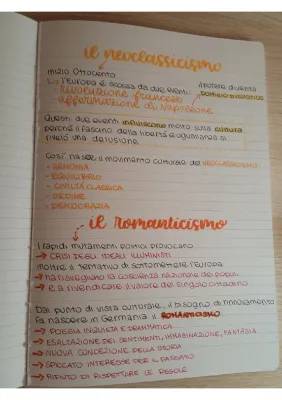 il neoclassicismo
Inizio Ottocento
L'Europa è scossa da due eventi
rivoluzione francese
affermazione di Napoleone
il potere diventa
Questi due eventi influiscono molto sulla cultura
perché il fascino della libertà e uguaglianza si
rivelò una delusione.
Così nasce il movimento culturale del NEOCLASSICISMO
- ARMONIA
- EQUILIBRIO
- CIVILTÀ CLASSICA
- ORDINE
- DEMOCRAZIA
il romanticismo
I rapidi mutamenti politici provocano
→ CRISI DEGLI IDEALI ILLUMINISTI
Inoltre il tentativo di sottomettere l'Europa
→ HA RISVEGLIATO LA COSCIENZA NAZIONALE DEI POPOLI
→ E A RIVENDICARE IL VALORE DEL SINGOLO CITTADINO
Dal punto di vista culturale, il bisogno di rinnovamento
fa nascere in Germania il ROMANTICISMO
→ POESIA INQUIETA E DRAMMATICA
→ ESALTAZIONE DEI SENTIMENTI, IMMAGINAZIONE, FANTASIA
→ NUOVA CONCEZIONE DELLA STORIA
→ SPICCATO INTERESSE PER IL PASSATO
→ RIFIUTO DI RISPETTARE LE REGOLE